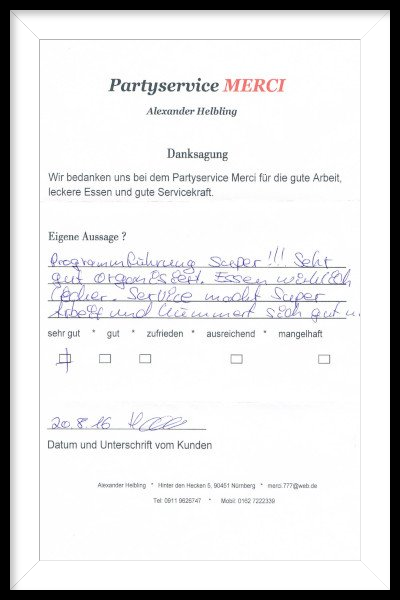 Partyservice MERCI
Alexander Helbling
Danksagung
Wir bedanken uns bei dem Partyservice Merci für die gute Arbeit,
leckere Essen und gute Servicekraft.
Eigene Aussage ?
Programmführung Super!!! Sehr
gut organisiert. Essen wirklich
lecker. Service macht Super
Arbeit und kümmert sich gut u.
sehr gut * gut * zufrieden * ausreichend * mangelhaft
20.8.16
Datum und Unterschrift vom Kunden
Alexander Helbling * Hinter den Hecken 5, 90451 Nürnberg * merci.777@web.de
Tel: 0911 9626747 * Mobil: 0162 7222339